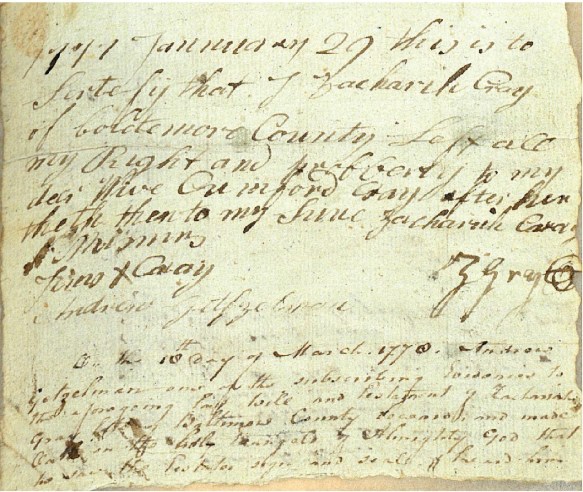 1771 Jannuary 29 this is to
Sertefy that I Zacharih Gray
of boldemore County Left all
my Right and probberty to my
dear Wive Cumford Gray after her
theth then to my Sune Zacharih Gray
Gray
Z Gray
Andrew Getzelman
On the 18th Day of March 1778. Andrew
Getzelman one of the subscribing Witnesses to
the aforegoing last will and testament of Zachariah
Gray late of Baltimore County deceased, and made
Oath on the holy Evangels of Almighty God that
he saw the testator sign and seal & heard him